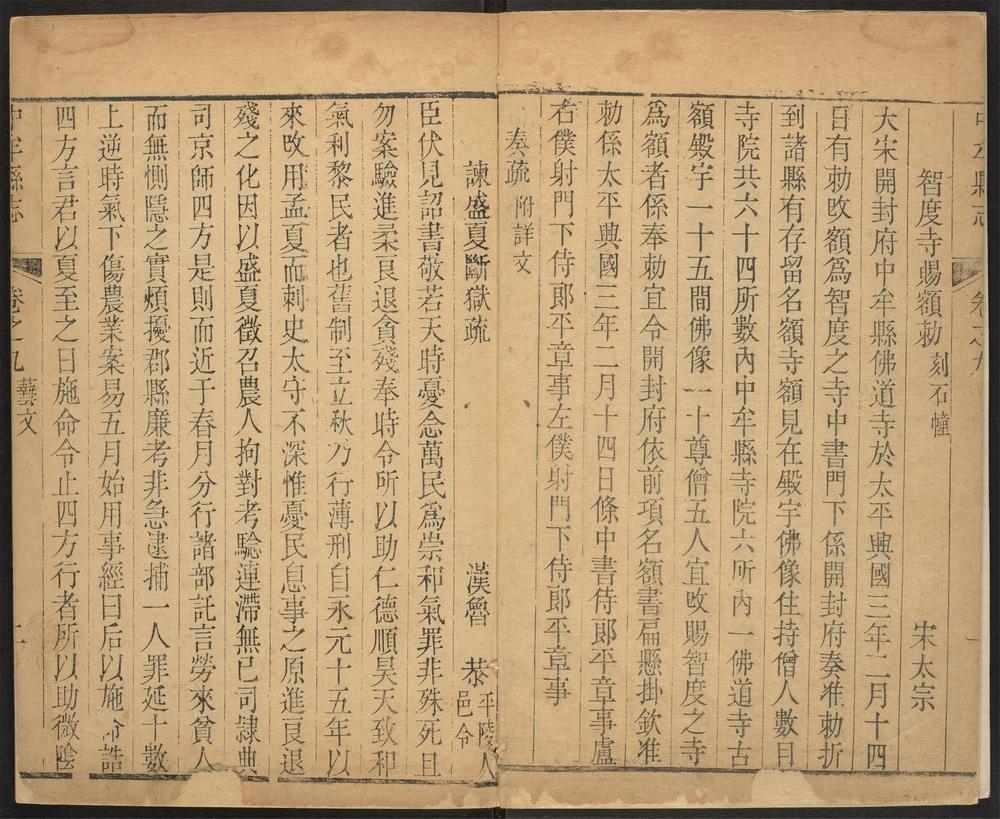 中牟縣志
卷之九
智度寺賜額勅 刻石幢 宋太宗
大宋開封府中牟縣佛道寺於太平興國三年二月十四
日有勅改額爲智度之寺中書門下係開封府奏准勅折
到諸縣有存留名額寺額見在殿宇佛像住持僧人數目
寺院共六十四所數內中牟縣寺院六所內一佛道寺古
額殿宇一十五間佛像一十尊僧五人宜改賜智度之寺
爲額者係奉勅宜令開封府依前項名額書扁懸掛欽准
勅係太平興國三年二月十四日條中書侍郎平章事盧
右僕射門下侍郎平章事左僕射門下侍郎平章事
奏疏 附詳文
諫盛夏斷獄疏 漢魯 恭 平陵人 邑令
臣伏見詔書敬若天時憂念萬民爲崇和氣罪非殊死且
勿案驗進柔良退貪殘奉時令所以助仁德順昊天致和
氣利黎民者也舊制至立秋乃行薄刑自永元十五年以
來改用孟夏而刺史太守不深惟憂民息事之原進良退
殘之化因以盛夏徵召農人拘對考驗連滯無已司隸典
司京師四方是則而近于春月分行諸部託言勞來貧人
而無惻隱之實煩擾郡縣廉考非急逮捕一人罪延十數
上逆時氣下傷農業案易五月始用事經曰后以施命誥
四方言君以夏至之日施命令止四方行者所以助微陰
中牟縣志
卷之九
藝文